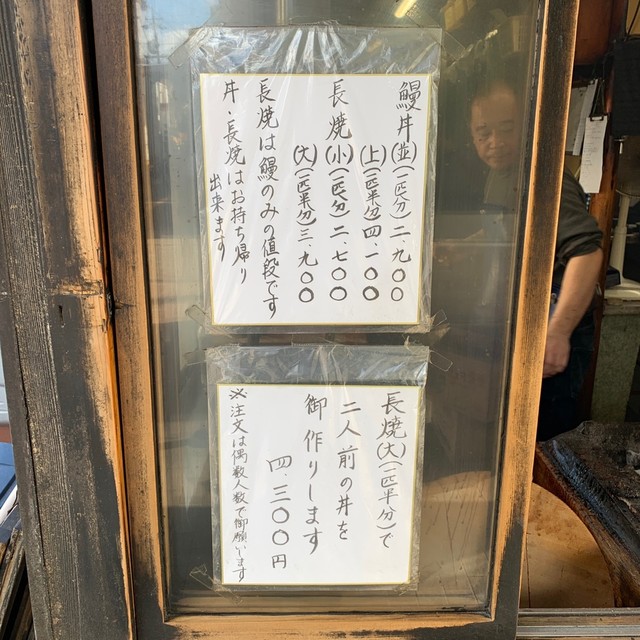 鰻丼(並)(一匹分)二、九〇〇
(上)(一匹半分)四、一〇〇
長焼(小)(一匹分)二、七〇〇
(大)(一匹半分)三、九〇〇
長焼は鰻のみの値段です
丼・長焼はお持ち帰り
出来ます
長焼(大)(一匹半分)で
二人前の丼を
御作りします
四、三〇〇円
※注文は偶数人数で御願います